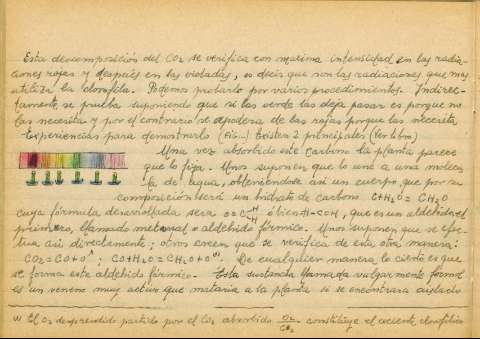 Esta descomposición del CO₂ se verifica con maxima intensidad en las radia-
ciones rojas y después en las violadas, es decir que son las radiaciones que mas
utiliza la clorofila. Podemos probarlo por varios procedimientos. Indirec-
tamente se prueba suponiendo que si las verdes las deja pasar es porque no
las necesita y por el contrario se apodera de las rojas porque las necesita
Experiencias para demostrarlo (Fig–) Existen 2 principales (Ver libro)
Una vez absorbido este Carbono la planta parece
que lo fija. Unos suponen que lo une a una molécu
la de agua, obteniéndose asi un cuerpo que por su
composición será un hidrato de carbono C+H₂O = CH₂O
cuya fórmula desarrollada sera O=C-H-H ó bien H-COH, que es un aldehido, el
primero, llamado metanal o aldehido fórmico. Unos suponen que se efec-
tua así directamente; otros creen que se verifica de esta otra manera:
CO₂=CO+O; CO+H₂O=CH₂O+O⁽¹⁾. De cualquier manera lo cierto es que
se forma este aldehido fórmico. Esta sustancia llamada vulgarmente formol
es un veneno muy activo que mataria a la planta si se encontrara aislado
(1) El O₂ desprendido partido por el CO₂ absorbido O₂/CO₂ constituye el cociente clorofílico